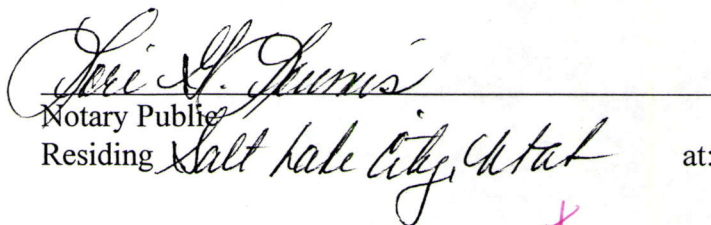 Lori G.
Notary Public
Residing Salt Lake City, Utah at: